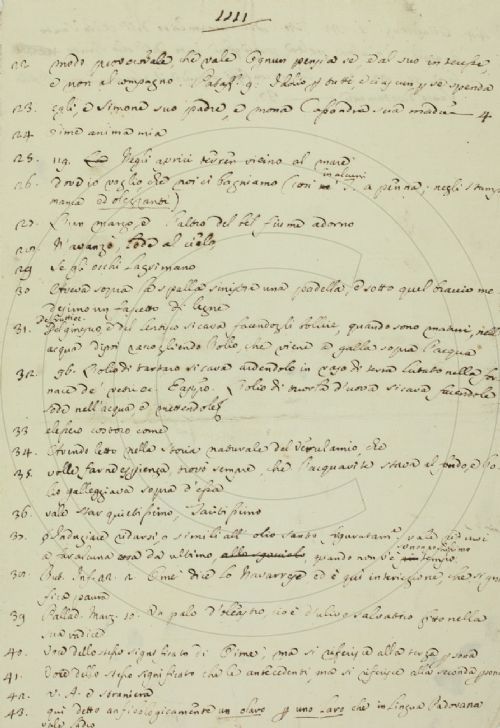 1111
22 modo proverbiale che vale Ognun pensa se e al suo interesse,
e non al compagno. Pataff. 9. Iddio p tutti, e ciascun p se spenda
23. egli, e Simone suo padre, e mona sua madre 4
24 oime anima mia
25. 119. Negli aprici terren vicino al mare
26. Dove io voglio che noi ci bagniamo (così in alcuni a penna; negli Stamp.
manca ed
27. L'un marzo, è l'altro del bel fiume adorno
28 N'avanzò, loda al cielo
29 Se gli occhi lagrimano
30 Aveva sopra la spalla sinistra una padella, e sotto quel braccio me
desimo un fascetto di legne
31. Del ginepro, e del lentisco si cava facendogli bollire, quando sono maturi, nell'
acqua dipoi raccogliendo l'olio, che viene a galla sopra l'acqua
32. L'olio di tartaro si cava ardendolo in vaso di terra lutato nella for
nace de' L'olio di d'uova si cava facendole
sode nell'acqua e mettendole
33 elesse costoro come
34. Avendo letto nella Storia naturale del Verulamio, che
35. volle farne esperienza trovò sempre, che l'acquavite stava al fondo, e l'o
lio galleggiava sopra d'essa
36. vale star quietissimo,
37. o simili all' olio santo figuratam. vale
a far alcuna cosa da ultimo quando non v'è tempo
38. But. Inf. 22. 2 Ome dice lo Navarrese ed è qui interiezione, che signi
fica paura
39 Pallad. Marz. 10. Un palo d'oleastro, cioè d'ulivo salvatico fitto nella
sua radice
40. Voce dello stesso significato di Oime, ma si riferisce alla terza psona
41. Voce dello stesso significato che le antecedenti ma si riferisce alla seconda psona
42. V. A. e straniera
43. qui detto anfibologicamente un olavo p uno lavo che in lingua Padovana
vale ladro